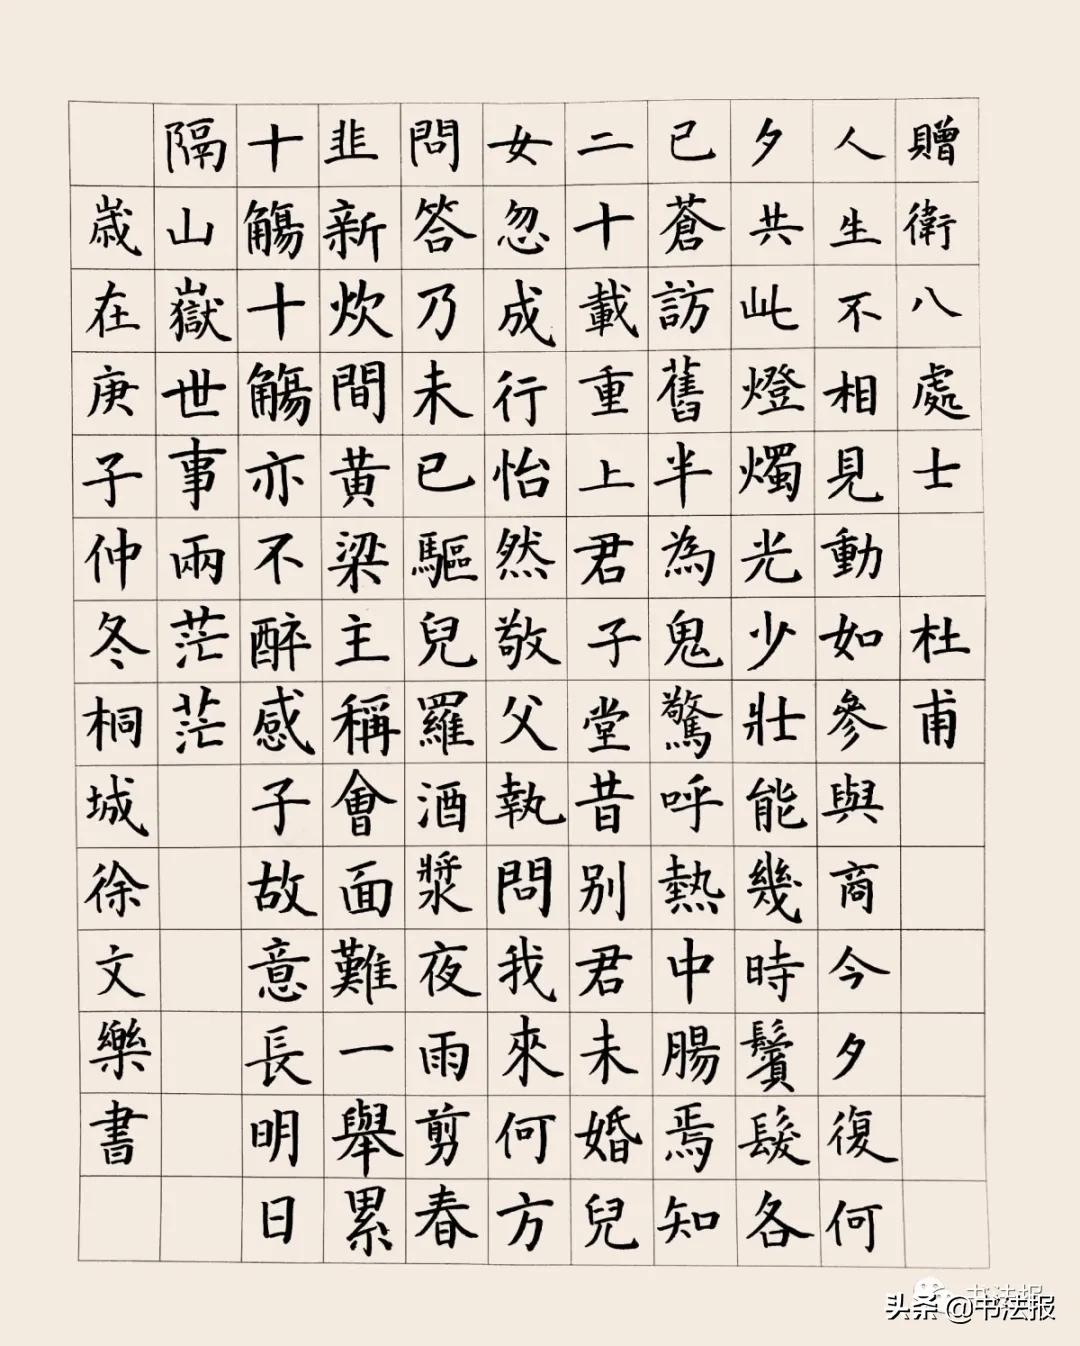 贈衛八處士 杜甫
人生不相見動如參與商今夕復何
夕共此燈燭光少壯能幾時鬢髮各
已蒼訪舊半為鬼驚呼熱中腸焉知
二十載重上君子堂昔別君未婚兒
女忽成行怡然敬父執問我來何方
問答乃未已驅兒羅酒漿夜雨剪春
韭新炊間黃粱主稱會面難一舉累
十觴十觴亦不醉感子故意長明日
隔山嶽世事兩茫茫
歲在庚子仲冬桐城徐文樂書
书法报
头条 @书法报